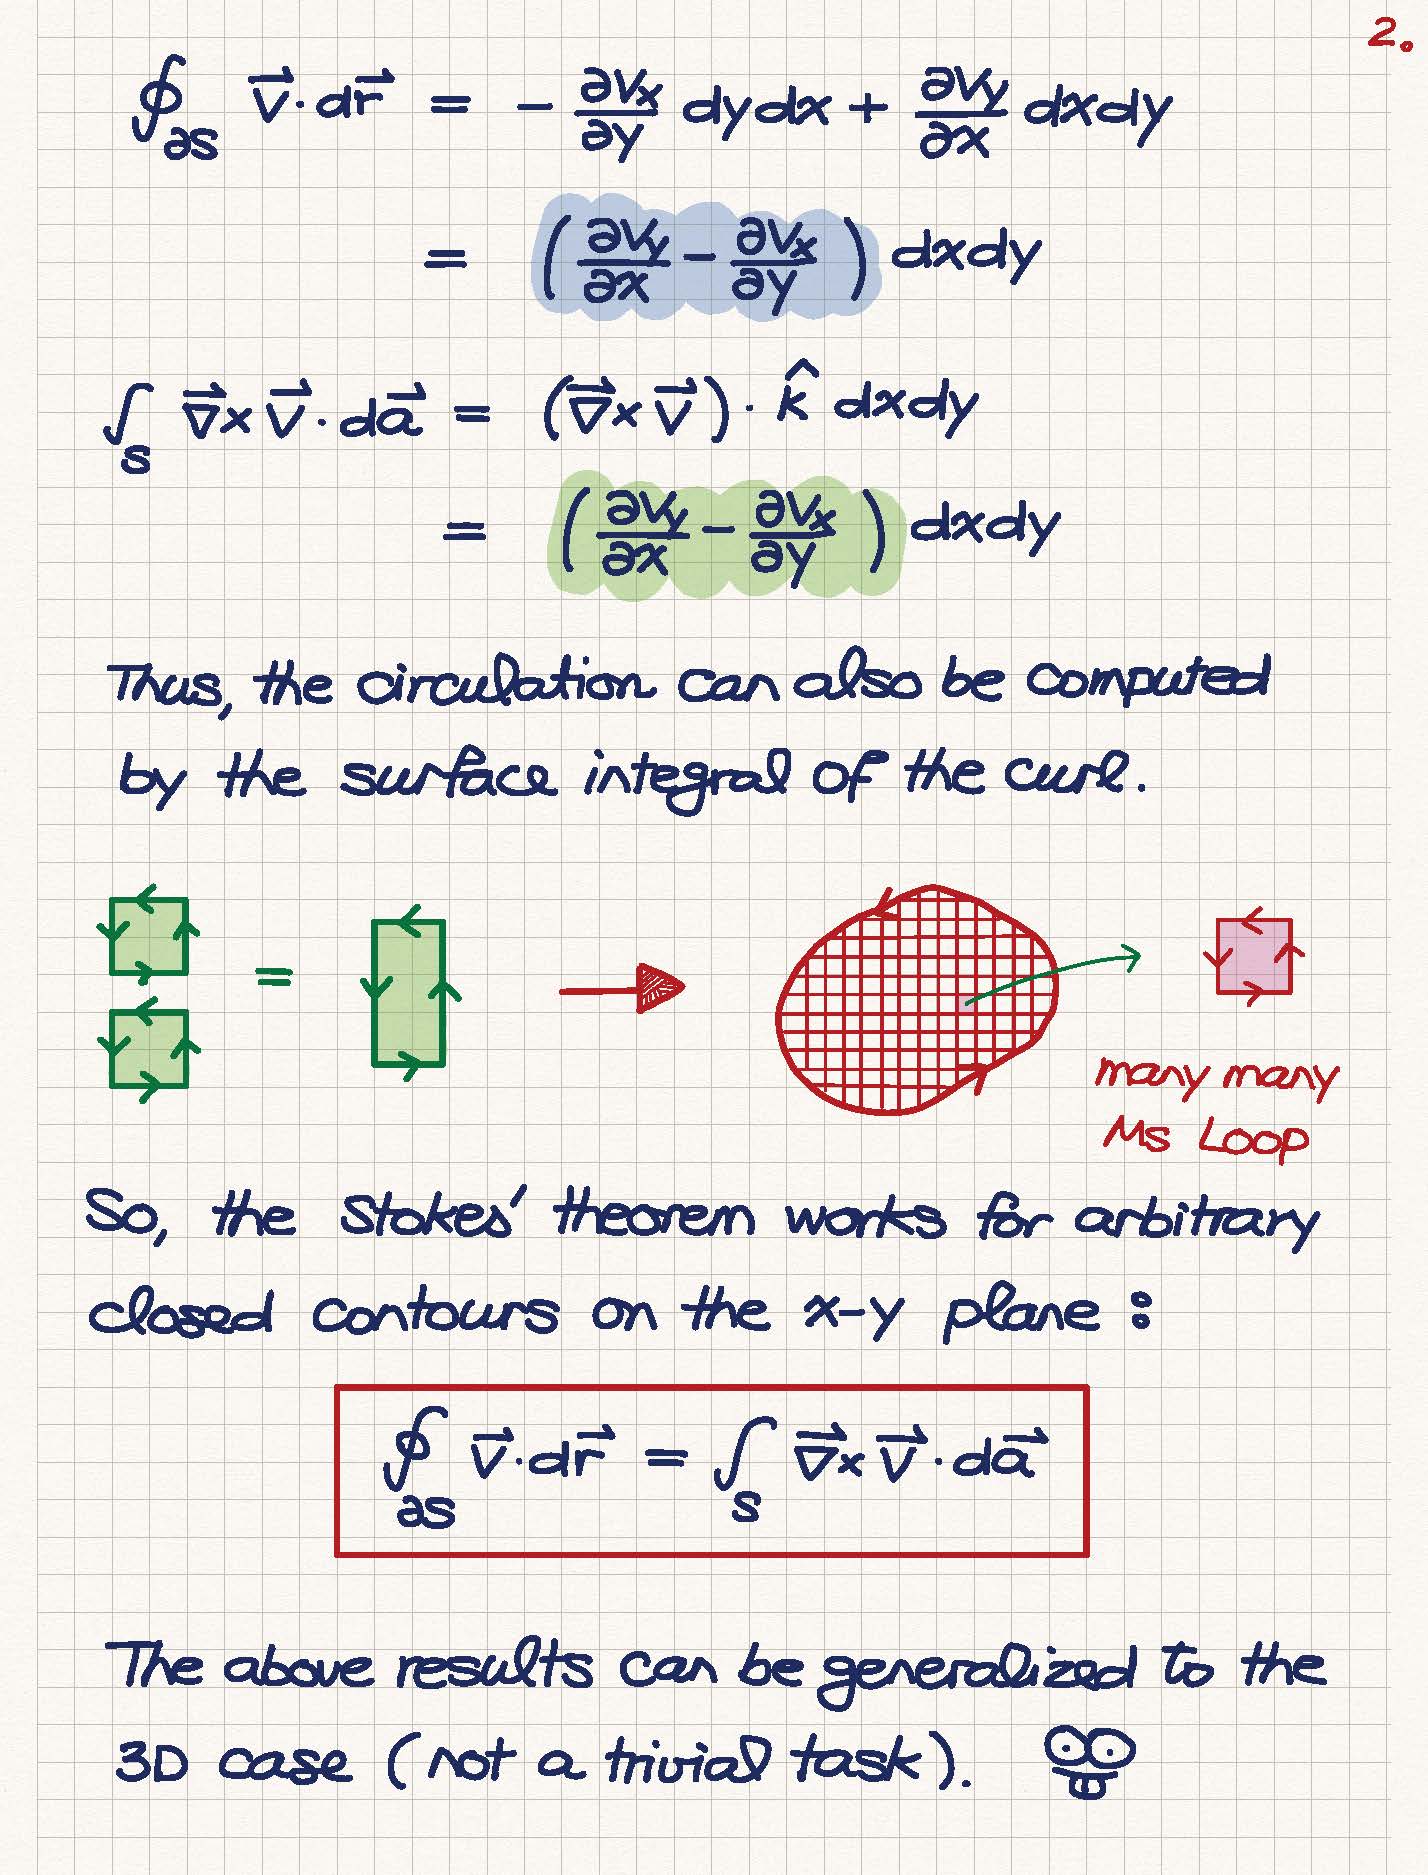 2.
∮_∂S v⃗ · dr⃗ = − ∂Vx/∂y dydx + ∂Vy/∂x dxdy
= (∂Vy/∂x − ∂Vx/∂y) dxdy
∫_S ∇⃗ × v⃗ · da⃗ = (∇⃗ × v⃗) · k̂ dxdy
= (∂Vy/∂x − ∂Vx/∂y) dxdy
Thus, the circulation can also be computed
by the surface integral of the curl.
=
many many
Ms Loop
So, the Stokes' theorem works for arbitrary
closed contours on the x-y plane :
∮_∂S v⃗ · dr⃗ = ∫_S ∇⃗ × v⃗ · da⃗
The above results can be generalized to the
3D case (not a trivial task).